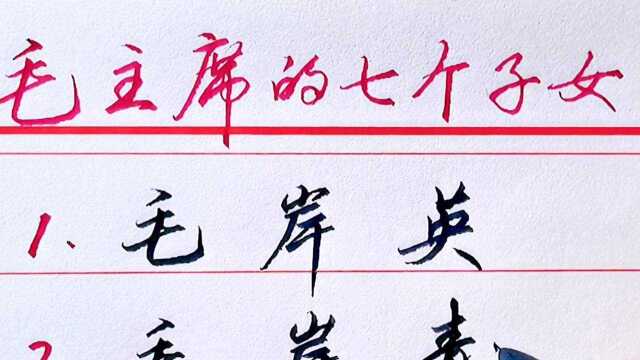 毛主席的七个子女
1、毛岸英
2、毛岸青